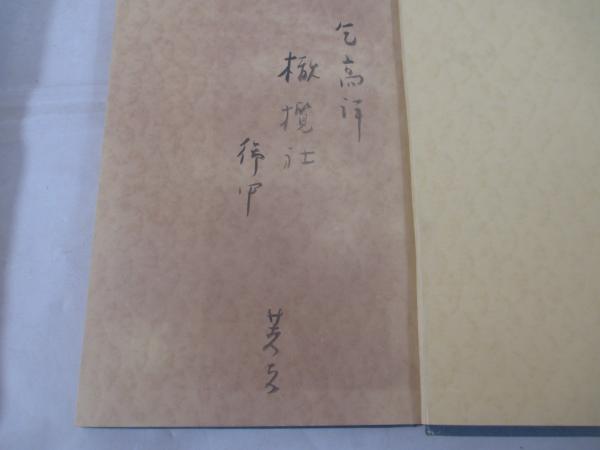 乞高評
橄欖社
御中